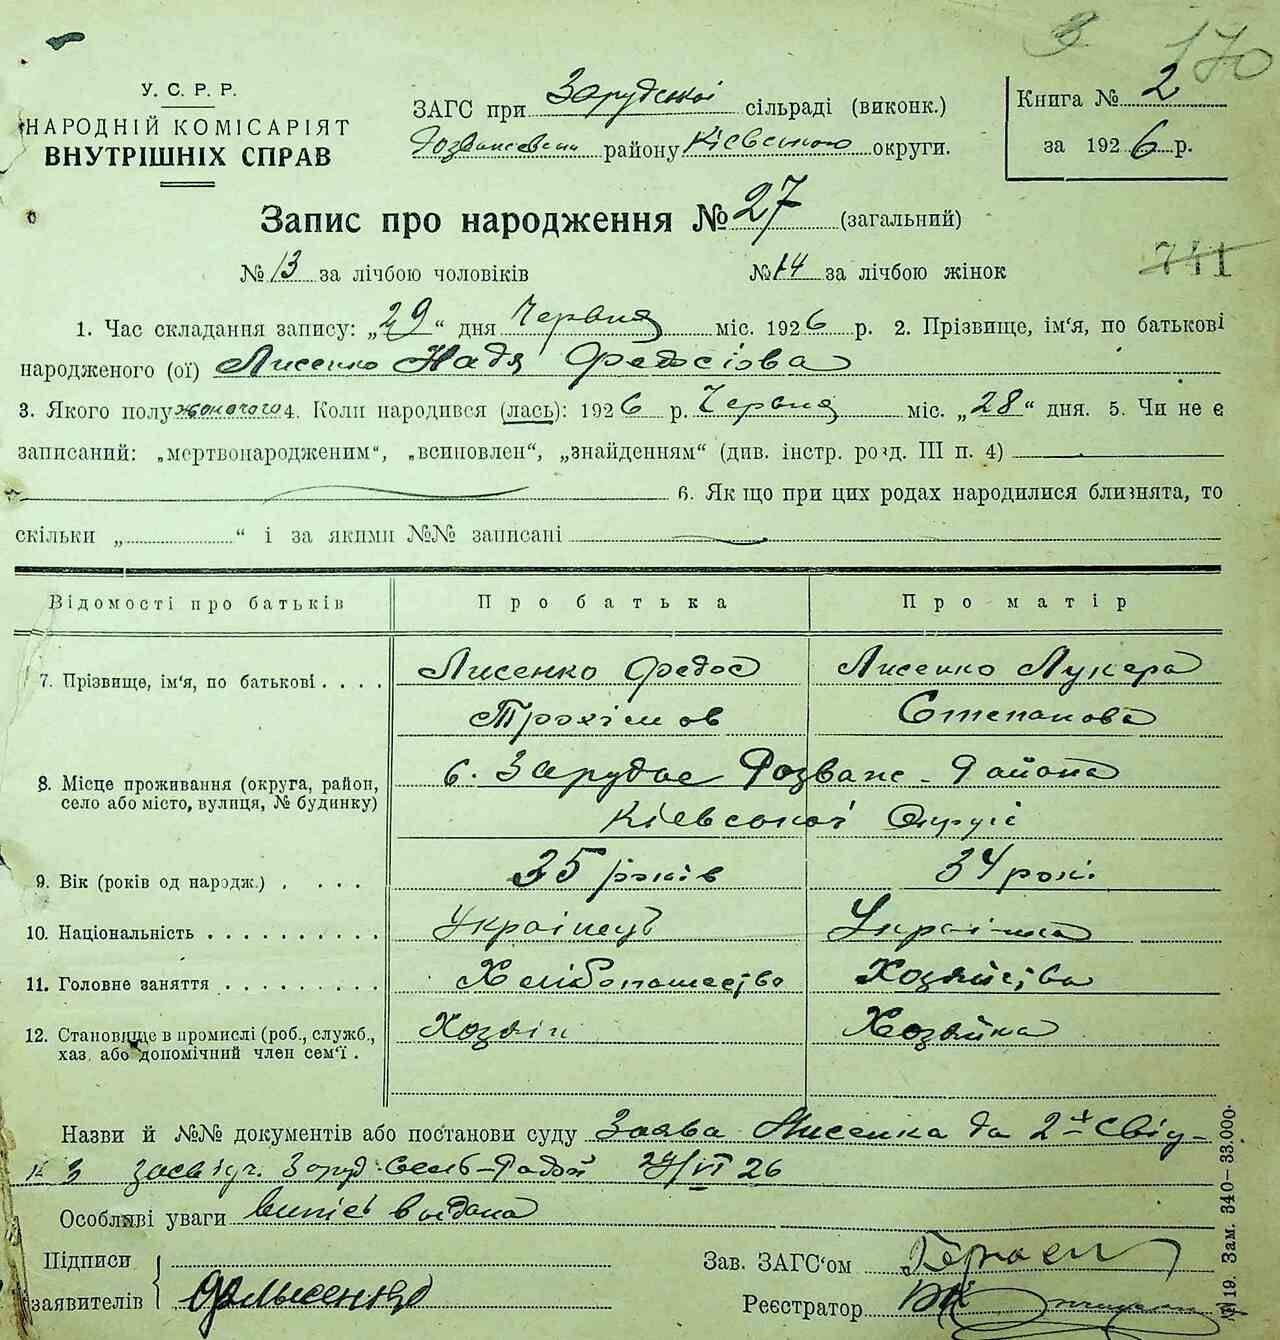 170
У. С. Р. Р.
НАРОДНІЙ КОМІСАРІЯТ
ВНУТРІШНІХ СПРАВ
ЗАГС при Зарудської сільраді (виконк.)
району Київської округи.
Книга № 2
за 1926 р.
Запис про народження № 27 (загальний)
№ 13 за лічбою чоловіків № 14 за лічбою жінок
741
1. Час складання запису: „29“ дня Червня міс. 1926 р. 2. Прізвище, ім‘я, по батькові
народженого (ої) Лисенко Надя Федосіова
3. Якого полу жоночого 4. Коли народився (лась): 1926 р. Червня міс. „28“ дня. 5. Чи не є
записаний: „мертвонародженим“, „всиновлен“, „знайденням“ (див. інстр. розд. III п. 4)
6. Як що при цих родах народилися близнята, то
скільки „ “ і за якими №№ записані
Відомості про батьків Про батька Про матір
7. Прізвище, ім‘я, по батькові . . . . Лисенко Федос Лисенко Лукера
Трохімов Степанова
8. Місце проживання (округа, район,
село або місто, вулиця, № будинку)
с. Зарудье Розваж - Района
Кієвської Округі
9. Вік (років од народж.) . . . . 35 років 34 рокі
10. Національність . . . . . . . . . . Українец Українка
11. Головне заняття . . . . . . . . . Хлібопашество Хозяйства
12. Становище в промислі (роб., служб.,
хаз. або допомічний член сем‘ї .
Хозяін Хозяйка
Назви й №№ документів або постанови суду Заява Лисенка да 2х свід-
засвідч. Заруд. Сель-Радой VI 26
Особляві уваги випісь видана
Підписи
заявителів
Зав. ЗАГС‘ом
Реєстратор
№ 19. Зам. 340—33.000.